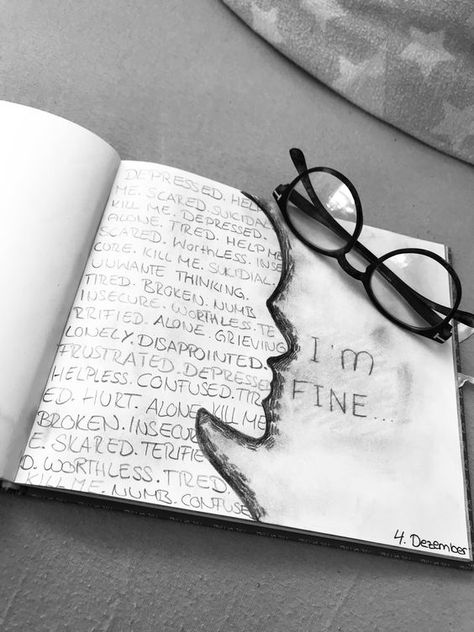 DEPRESSED. HELP
ME. SCARED. SUICIDAL.
KILL ME. DEPRESSED.
ALONE. TIRED. HELP ME.
SCARED. WORTHLESS. INSE
CURE. KILL ME. SUICIDIAL.
UUWANTE THINKING.
TIRED. BROKEN. NUMB
INSECURE. WORTHLESS. TE
RRIFIED. ALONE. GRIEVING
LONELY. DISAPPOINTED.
FRUSTRATED. DEPRESSED
HELPLESS. CONFUSED. TIR
ED. HURT. ALONE. KILL ME
BROKEN. INSECUR
E. SKARED. TERIFIE
D. WORTHLESS. TIRED.
KILL ME. NUMB. CONFUSE
I'M
FINE...
4. Dezember